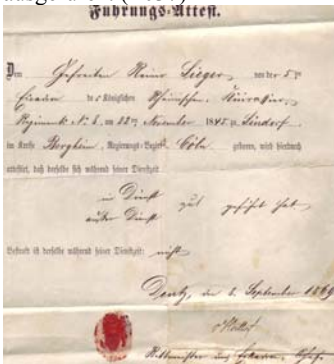 Führungs-Attest.
Dem Gefreiten Reiner Sieger, von der 5ten
Escadron des Königlichen Rheinischen Kürassier
Regiments No 8. am 22ten November 1845 zu Sindorf
im Kreise Bergheim, Regierungs-Bezirk Cöln geboren, wird hierdurch
attestirt, daß derselbe sich während seiner Dienstzeit
in Dienst
außer Dienst gut geführt hat,
Bestraft ist derselbe während seiner Dienstzeit: nicht
Deutz, den 6. September 1869
Rittmeister und Escadron Chef.